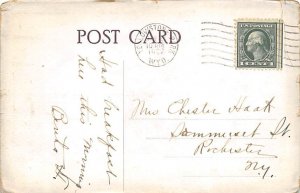 POST CARD
WYO
1 CENT 1
Had breakfast
here this morning
Mr Chester Haak
Sommerset St.
Rochester
N.Y.